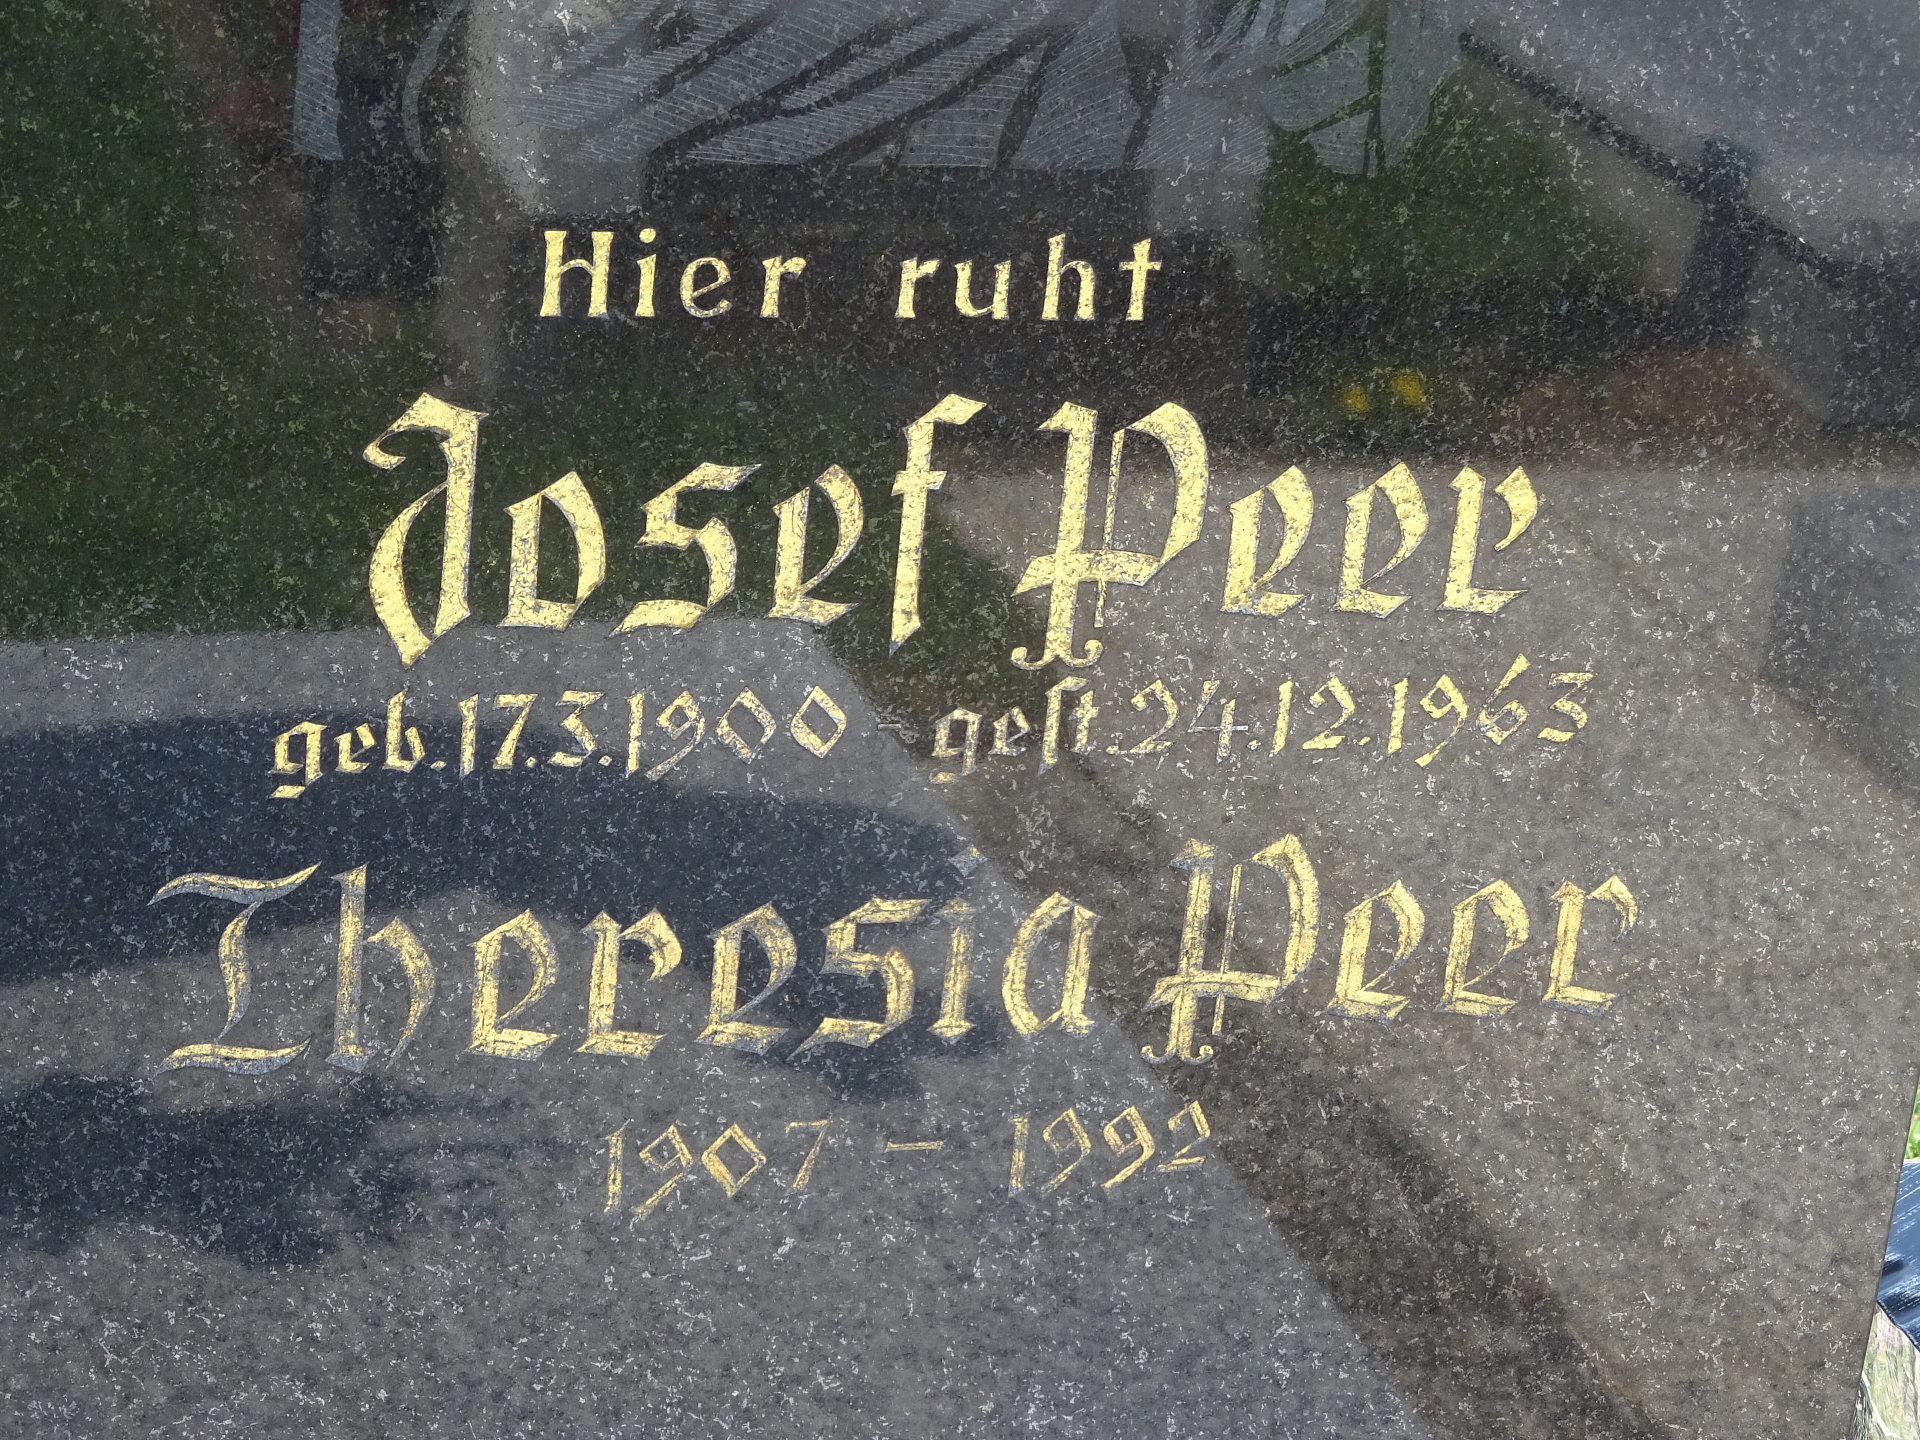 Hier ruht
Josef Peer
geb. 17.3.1900 - gest. 24.12.1963
Theresia Peer
1907 - 1992